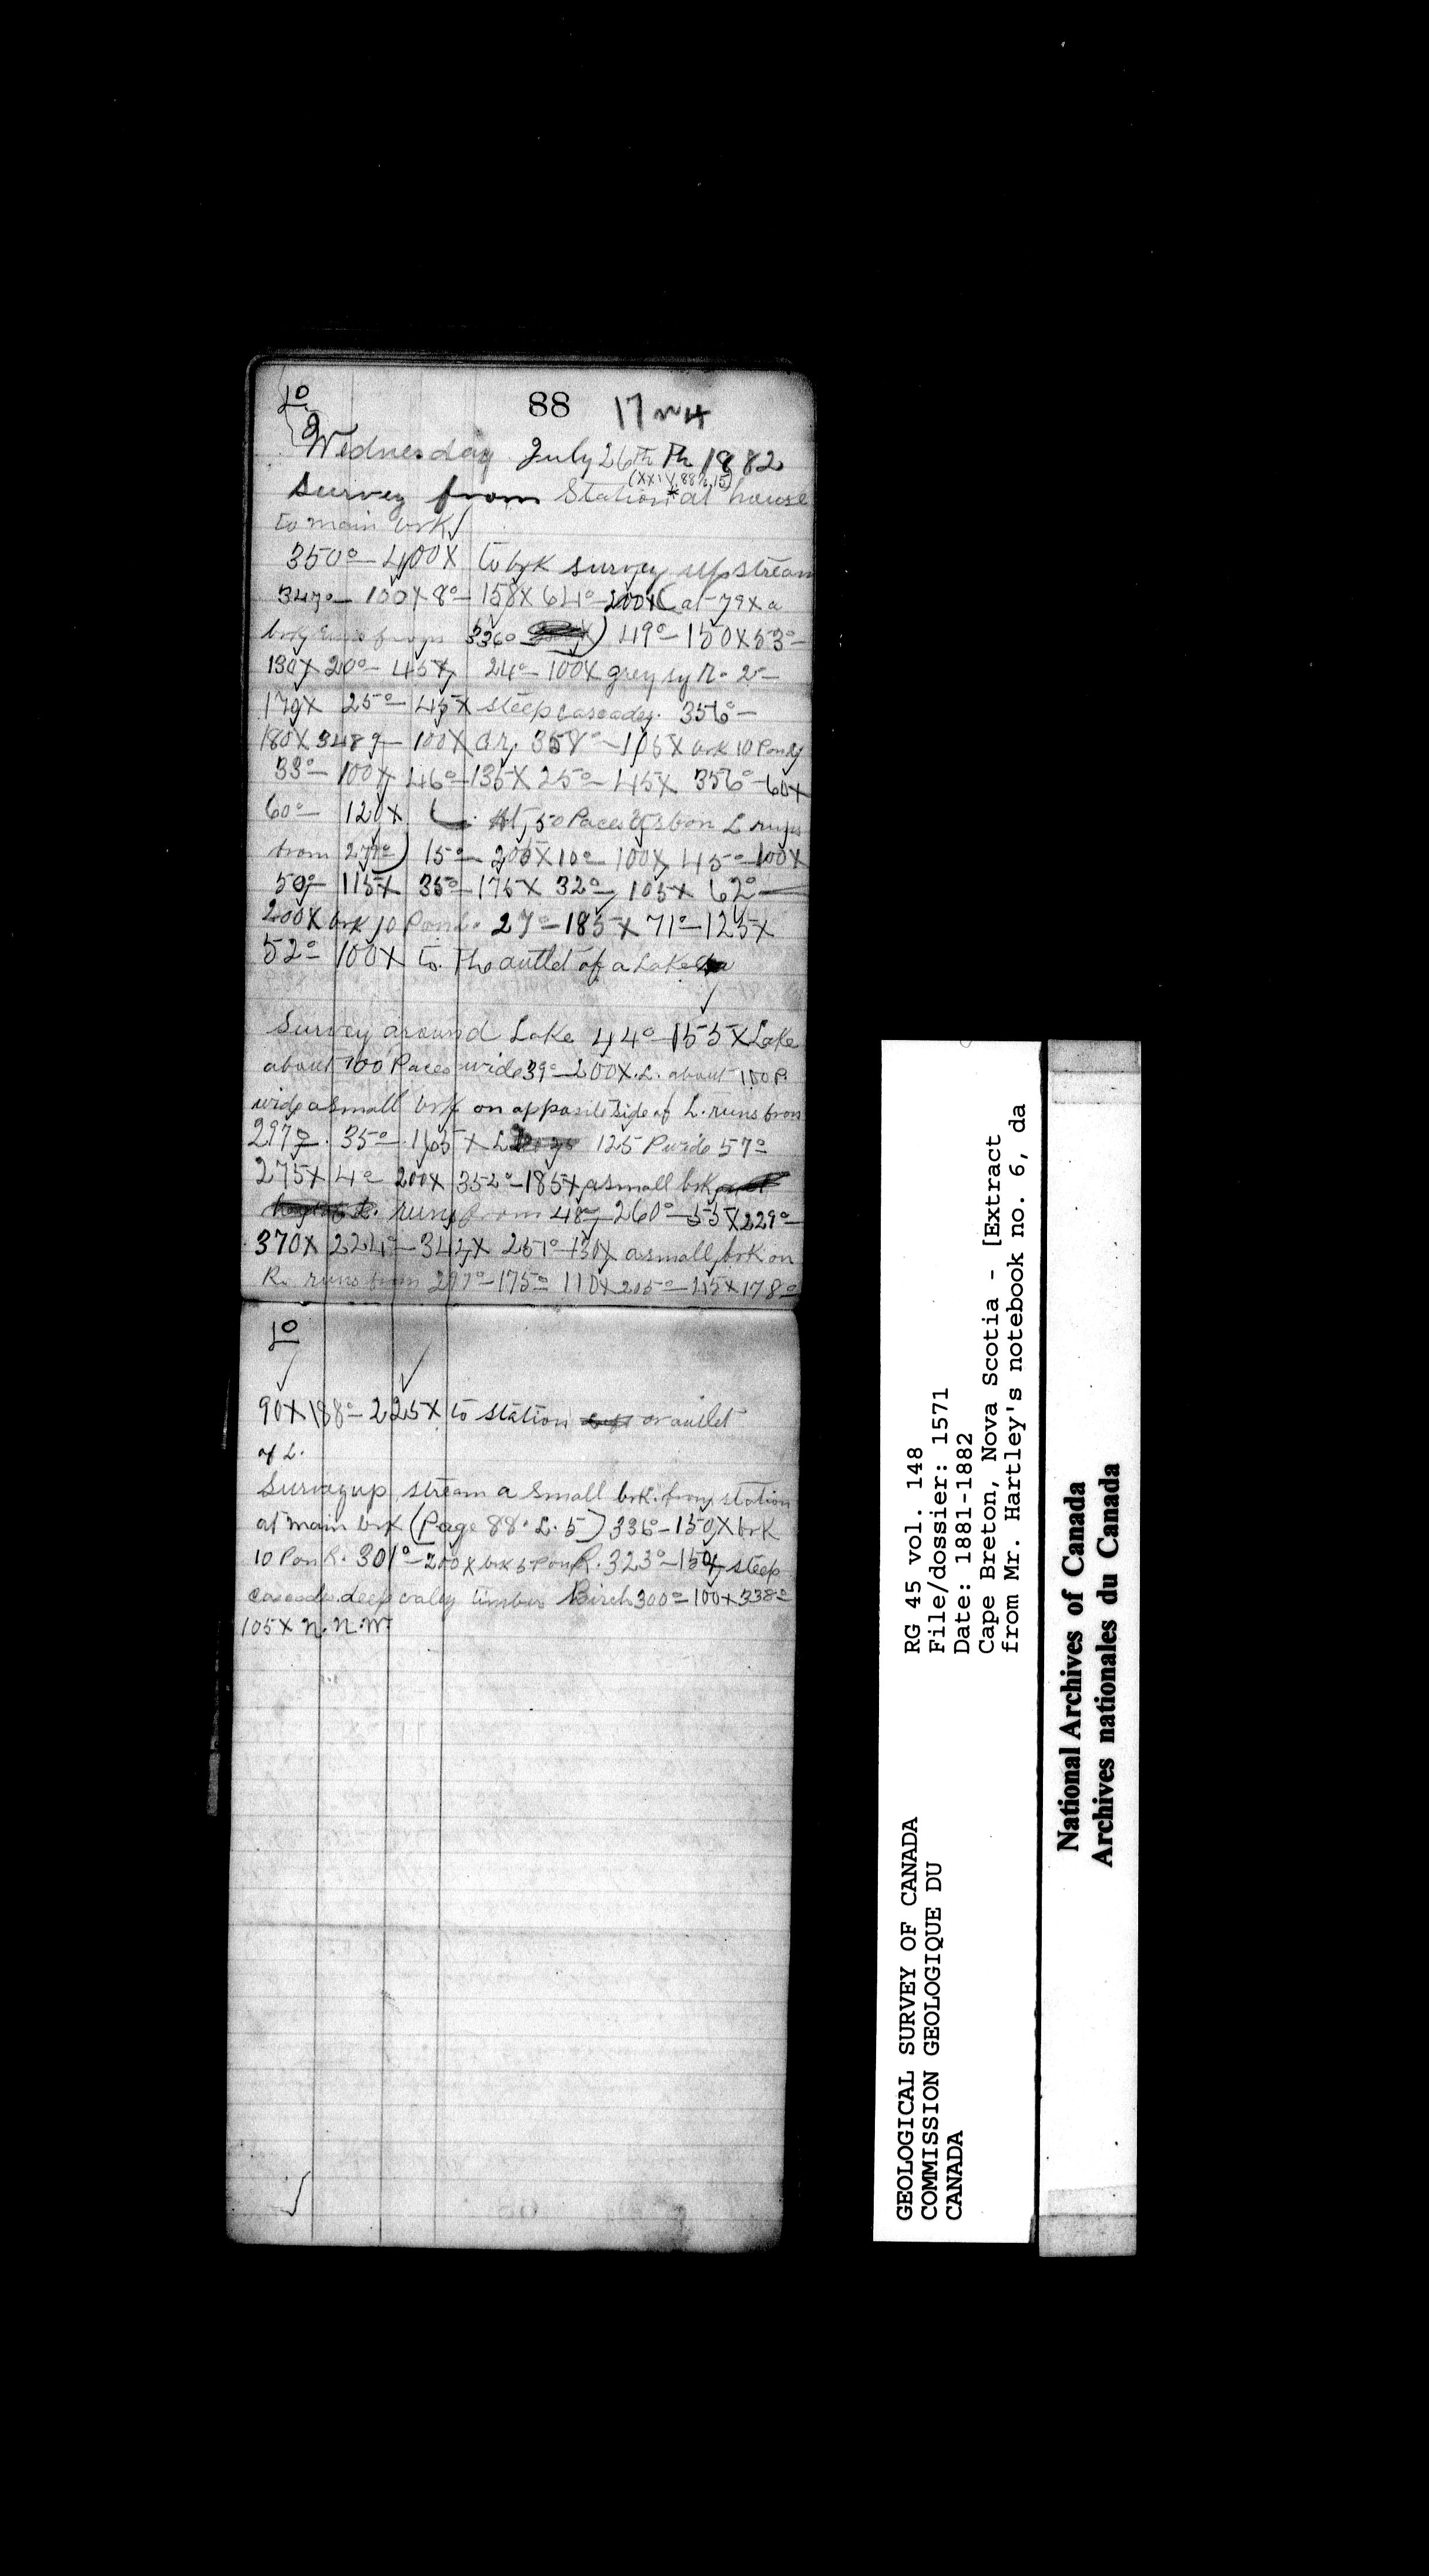 10
88 17
Wednesday July 26th Th 1882
(XXIV, 88½, 15)
Survey from Station* at house
to main brk
350°-400X to brk survey up stream
347°- 100X 8°- 158X 64°-200X (at 79X a
brk runs from 336° ) 49°- 150X 53°-
130X 20°- 45X 24°- 100X grey sy R. 2°-
179X 25°- 45X steep cascades. 356°-
180X 348°- 100X dr, 358°- 105X brk 10 P on
33°- 100X 46°-135X 25°- 45X 356°-60X
60°- 120X (At 50 Paces brk on L runs
from 277°) 15°- 200X 10°- 100X 45°-100X
50°- 115X 35°-175X 32°- 105X 62°-
200X brk 10 P on L. 27°-185X 71°-125X
52°- 100X to The outlet of a Lake
Survey around Lake 44°-155X Lake
about 100 Paces wide 39°-200X. L. about 100 P.
wide a small brk on opposite side of L. runs from
297°. 35°-165X L 125 P wide 57°-
275X 4°- 200X 352°-185X a small brk
runs from 48°- 260°-55X 229°-
370X 224°-342X 257°-130X a small brk on
R. runs from 297°-175°- 110X 205°-45X 178°-
10
90X 188°-225X to station or outlet
of L.
Survey up stream a small brk. from station
at main brk (Page 88. L. 5) 336°-150X brk
10 P on R. 301°-200X brk 5 P on R. 323°-150X steep
cascades deep valey timber Birch 300°-100X 338°-
105X N.N.W.
RG 45 vol. 148
File/dossier: 1571
Date: 1881-1882
Cape Breton, Nova Scotia - [Extract
from Mr. Hartley's notebook no. 6, da
GEOLOGICAL SURVEY OF CANADA
COMMISSION GEOLOGIQUE DU
CANADA
National Archives of Canada
Archives nationales du Canada